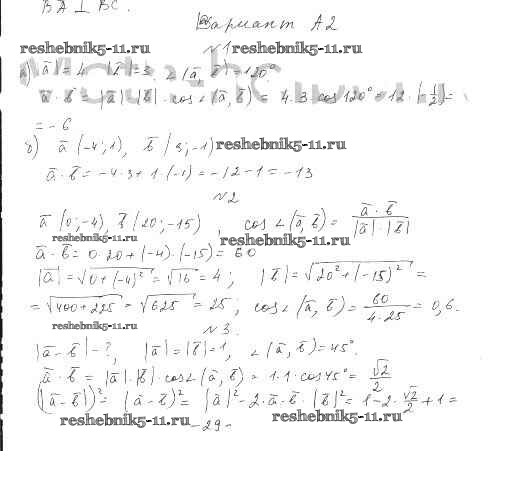 BA ⊥ BC.
Вариант А2
reshebnik5-11.ru №1 reshebnik5-11.ru
а) |ā| = 4 |b̄| = 3 ∠(ā, b̄) = 120°
ā · b̄ = |ā| · |b̄| · cos∠(ā, b̄) = 4 · 3 cos120° = 12 · (-1/2) =
= -6
б) ā (-4; 1), b̄ (3; -1) reshebnik5-11.ru
ā · b̄ = -4·3 + 1·(-1) = -12 - 1 = -13
№2
ā (0; -4), b̄ (20; -15), cos∠(ā, b̄) = ā · b̄ / |ā| · |b̄|
reshebnik5-11.ru reshebnik5-11.ru
ā · b̄ = 0·20 + (-4)·(-15) = 60
|ā| = √0 + (-4)² = √16 = 4; |b̄| = √20² + (-15)² =
= √400 + 225 = √625 = 25; cos∠(ā, b̄) = 60 / 4·25 = 0,6.
reshebnik5-11.ru №3.
|ā - b̄| - ?, |ā| = |b̄| = 1, ∠(ā, b̄) = 45°
ā · b̄ = |ā| · |b̄| cos∠(ā, b̄) = 1·1·cos45° = √2/2
(|ā - b̄|)² = (ā - b̄)² = |ā|² - 2·ā·b̄ · |b̄|² = 1 - 2·√2/2 + 1 =
reshebnik5-11.ru - 29 - reshebnik5-11.ru